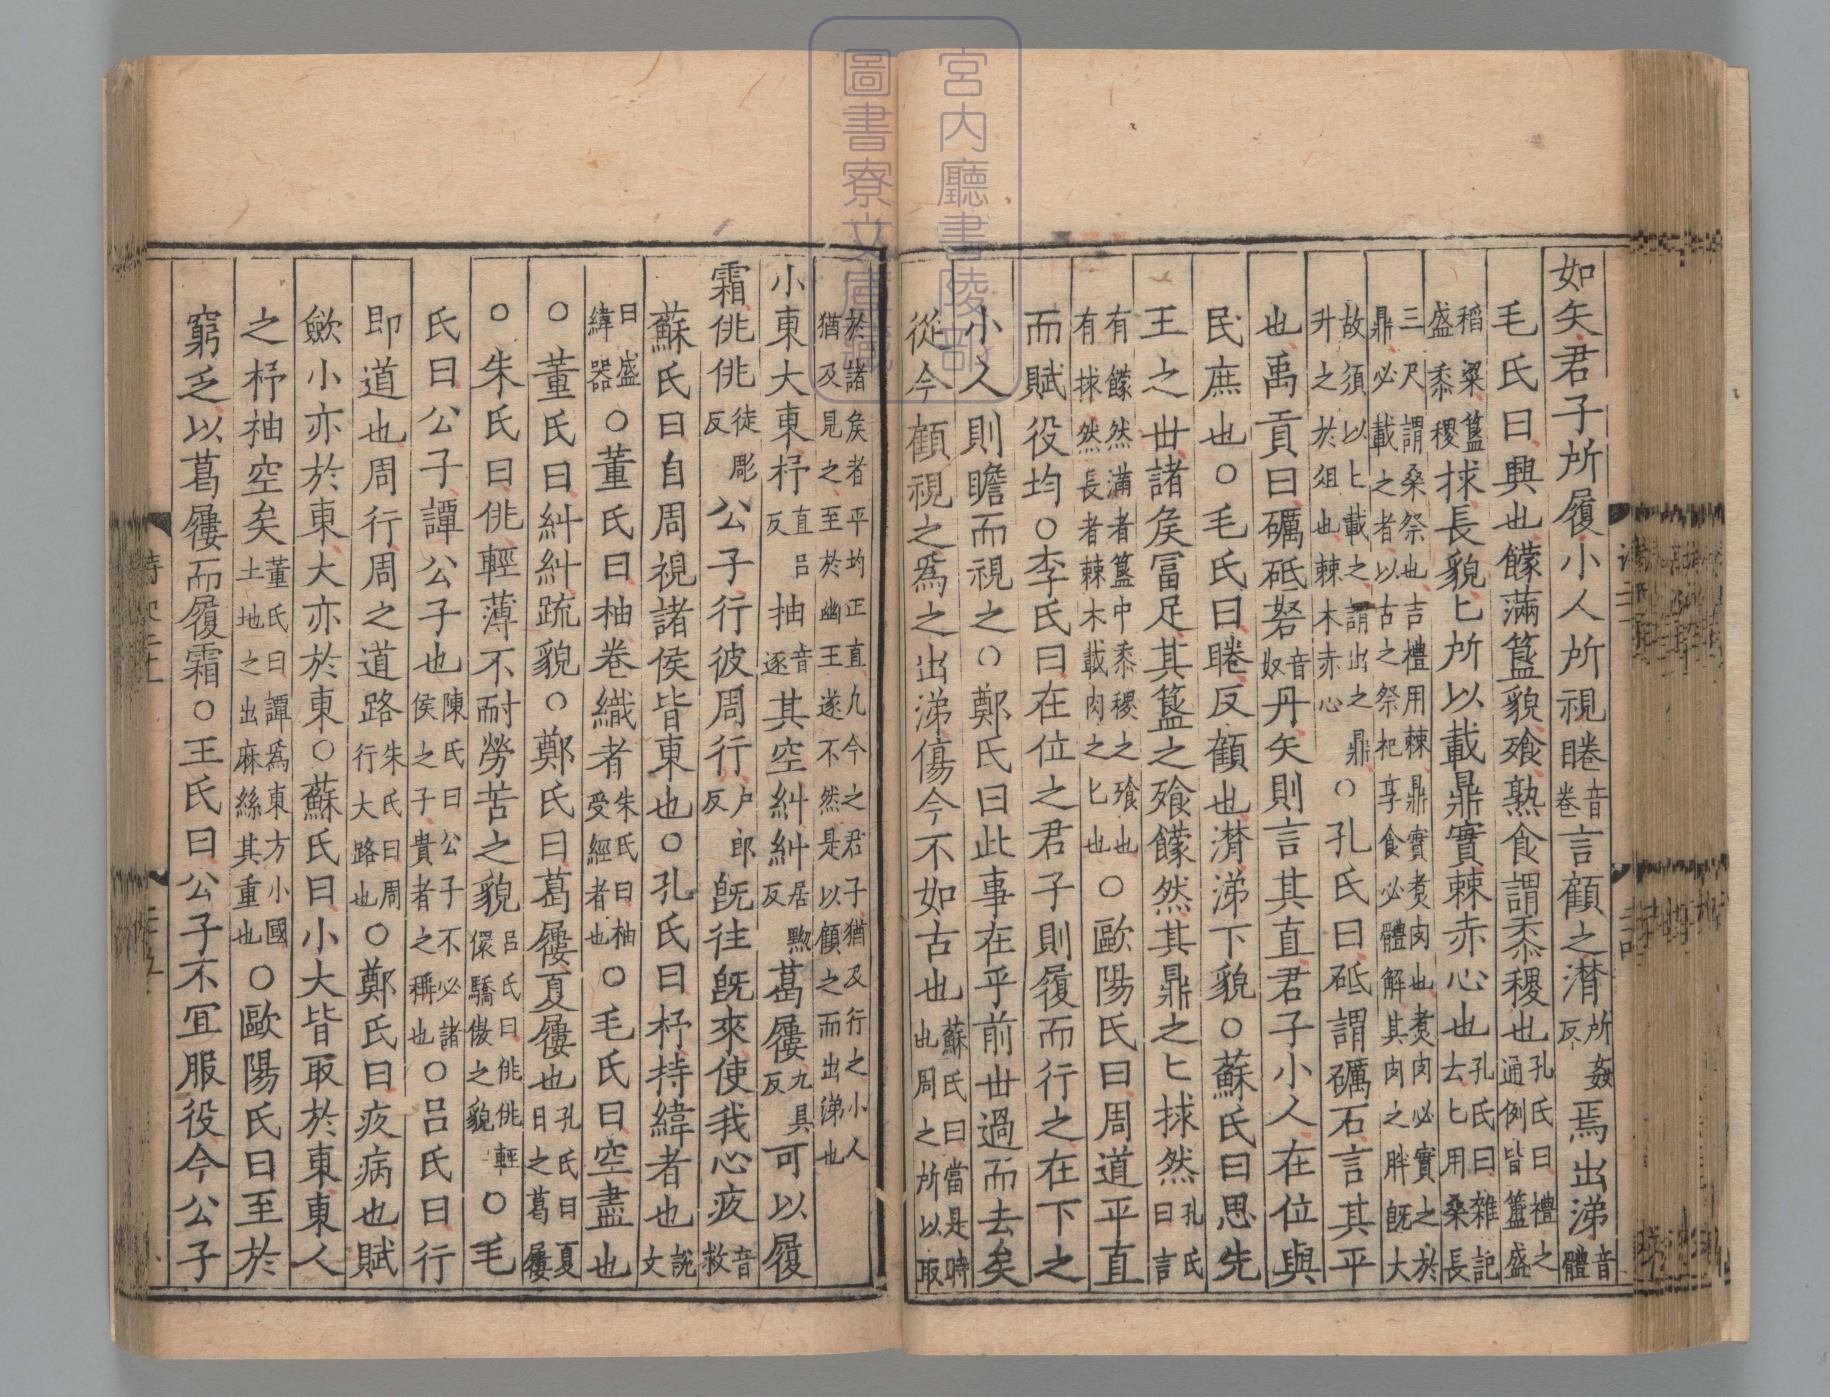 宮内廳書陵部
圖書寮文庫
如矢君子所履小人所視睠音卷言顧之潸所姦反焉出涕音體
毛氏曰興也饛滿簋貌飧熟食謂黍稷也孔氏曰禮之通例皆簠盛
稻粱簋盛黍稷捄長貌匕所以載鼎實棘赤心也孔氏曰雜記云匕用桑長
三尺謂桑祭也吉禮用棘鼎實煮肉也煮肉必實之於鼎必載之者以古之祭祀享食必體解其肉之胖旣大
故須以匕載之謂出之鼎升之於俎也棘木赤心○孔氏曰砥謂礪石言其平
也禹貢曰礪砥砮音奴丹矢則言其直君子小人在位與
民庶也○毛氏曰睠反顧也潸涕下貌○蘇氏曰思先
王之世諸矦冨足其簋之飧饛然其鼎之匕捄然孔氏曰言
有饛然滿者簋中黍稷之飧也有捄然長者棘木載肉之匕也○歐陽氏曰周道平直
而賦役均○李氏曰在位之君子則履而行之在下之
小人則瞻而視之○鄭氏曰此事在乎前世過而去矣
從今顧視之爲之出涕傷今不如古也蘇氏曰當是時也周之所以取
於諸矦者平均正直九今之君子猶及行之小人猶及見之至於幽王遂不然是以顧之而出涕也
小東大東杼直呂反柚音逐其空糾糾居黝反葛屨九具反可以履
霜佻佻徒彫反公子行彼周行戶郎反旣往旣來使我心疚音救
蘇氏曰自周視諸侯皆東也○孔氏曰杼持緯者也說文
曰盛緯器○董氏曰柚卷織者朱氏曰柚受經者也○毛氏曰空盡也
○董氏曰糾糾疏貌○鄭氏曰葛屨夏屨也孔氏曰夏日之葛屨
○朱氏曰佻輕薄不耐勞苦之貌呂氏曰佻佻輕儇驕傲之貌○毛
氏曰公子譚公子也陳氏曰公子不必諸侯之子貴者之稱也○呂氏曰行
即道也周行周之道路朱氏曰周行大路也○鄭氏曰疚病也賦
斂小亦於東大亦於東○蘇氏曰小大皆取於東東人
之杼柚空矣董氏曰譚爲東方小國土地之出麻絲其重也○歐陽氏曰至於
窮乏以葛屨而履霜○王氏曰公子不宜服役今公子